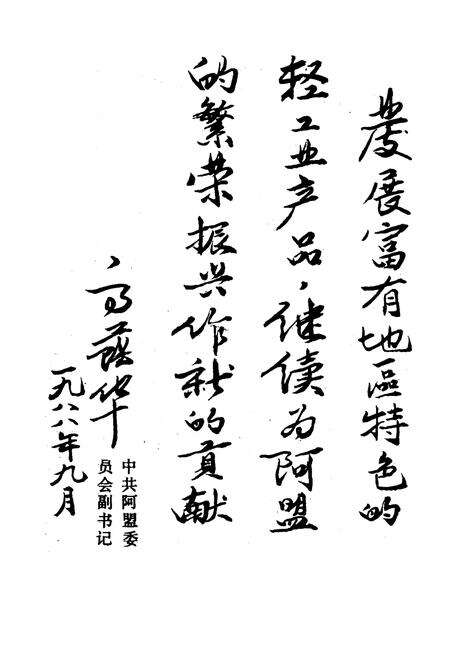 發展富有地區特色的
轻工业产品，继续为阿盟
的繁荣振兴作新的貢献
中共阿盟委
员会副书记
一九八八年九月